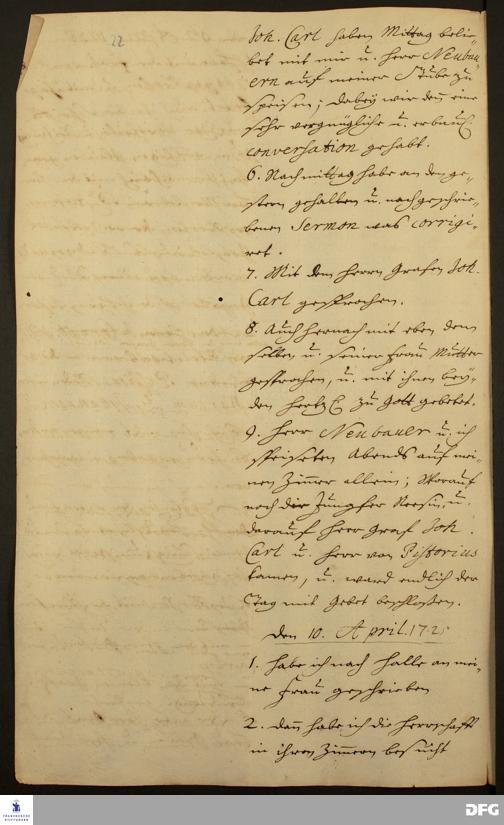 22
Joh. Carl haben Mittag belie-
bet mit mir u. Herr Neubau-
ern auf meiner Stube zu
speisen; dabey wir den eine
sehr vergnügliche u. erbaul.
conversation gehabt.
6. Nachmittag habe an dem ge-
stern gehalten u. nachgeschrie-
benen Sermon was corrigi-
ret.
7. Mit dem Herrn Grafen Joh.
Carl gesprochen.
8. Auch hernach mit eben dem
selben, u. seiner Frau Mutter
gesprochen, u. mit ihnen bey-
den hertzl. zu Gott gebetet.
9. Herr Neubauer u. ich
speiseten Abends auf mei-
nen Zimmer allein; Worauf
noch die Jungfer u.
darauf Herr Graf Joh.
Carl u. Herr von Pistorius
kamen, u. ward endlich der
Tag mit Gebet beschloßen.
Den 10. April. 172
1. habe ich nach Halle an mei-
ne Frau geschrieben
2. dann habe ich die Herrschafft
in ihren Zimmern besucht
FRANCKESCHE
STIFTUNGEN
DFG